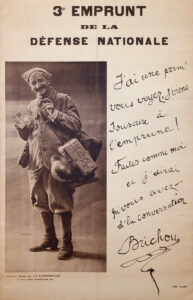 3e EMPRUNT
DE LA
DÉFENSE NATIONALE
J'ai une perm'
vous voyez, j'irons
jusqu'à
l'emprunt!
Faites comme moi
et j'dirai
qu'vous avez
d'la conversation
Brichou